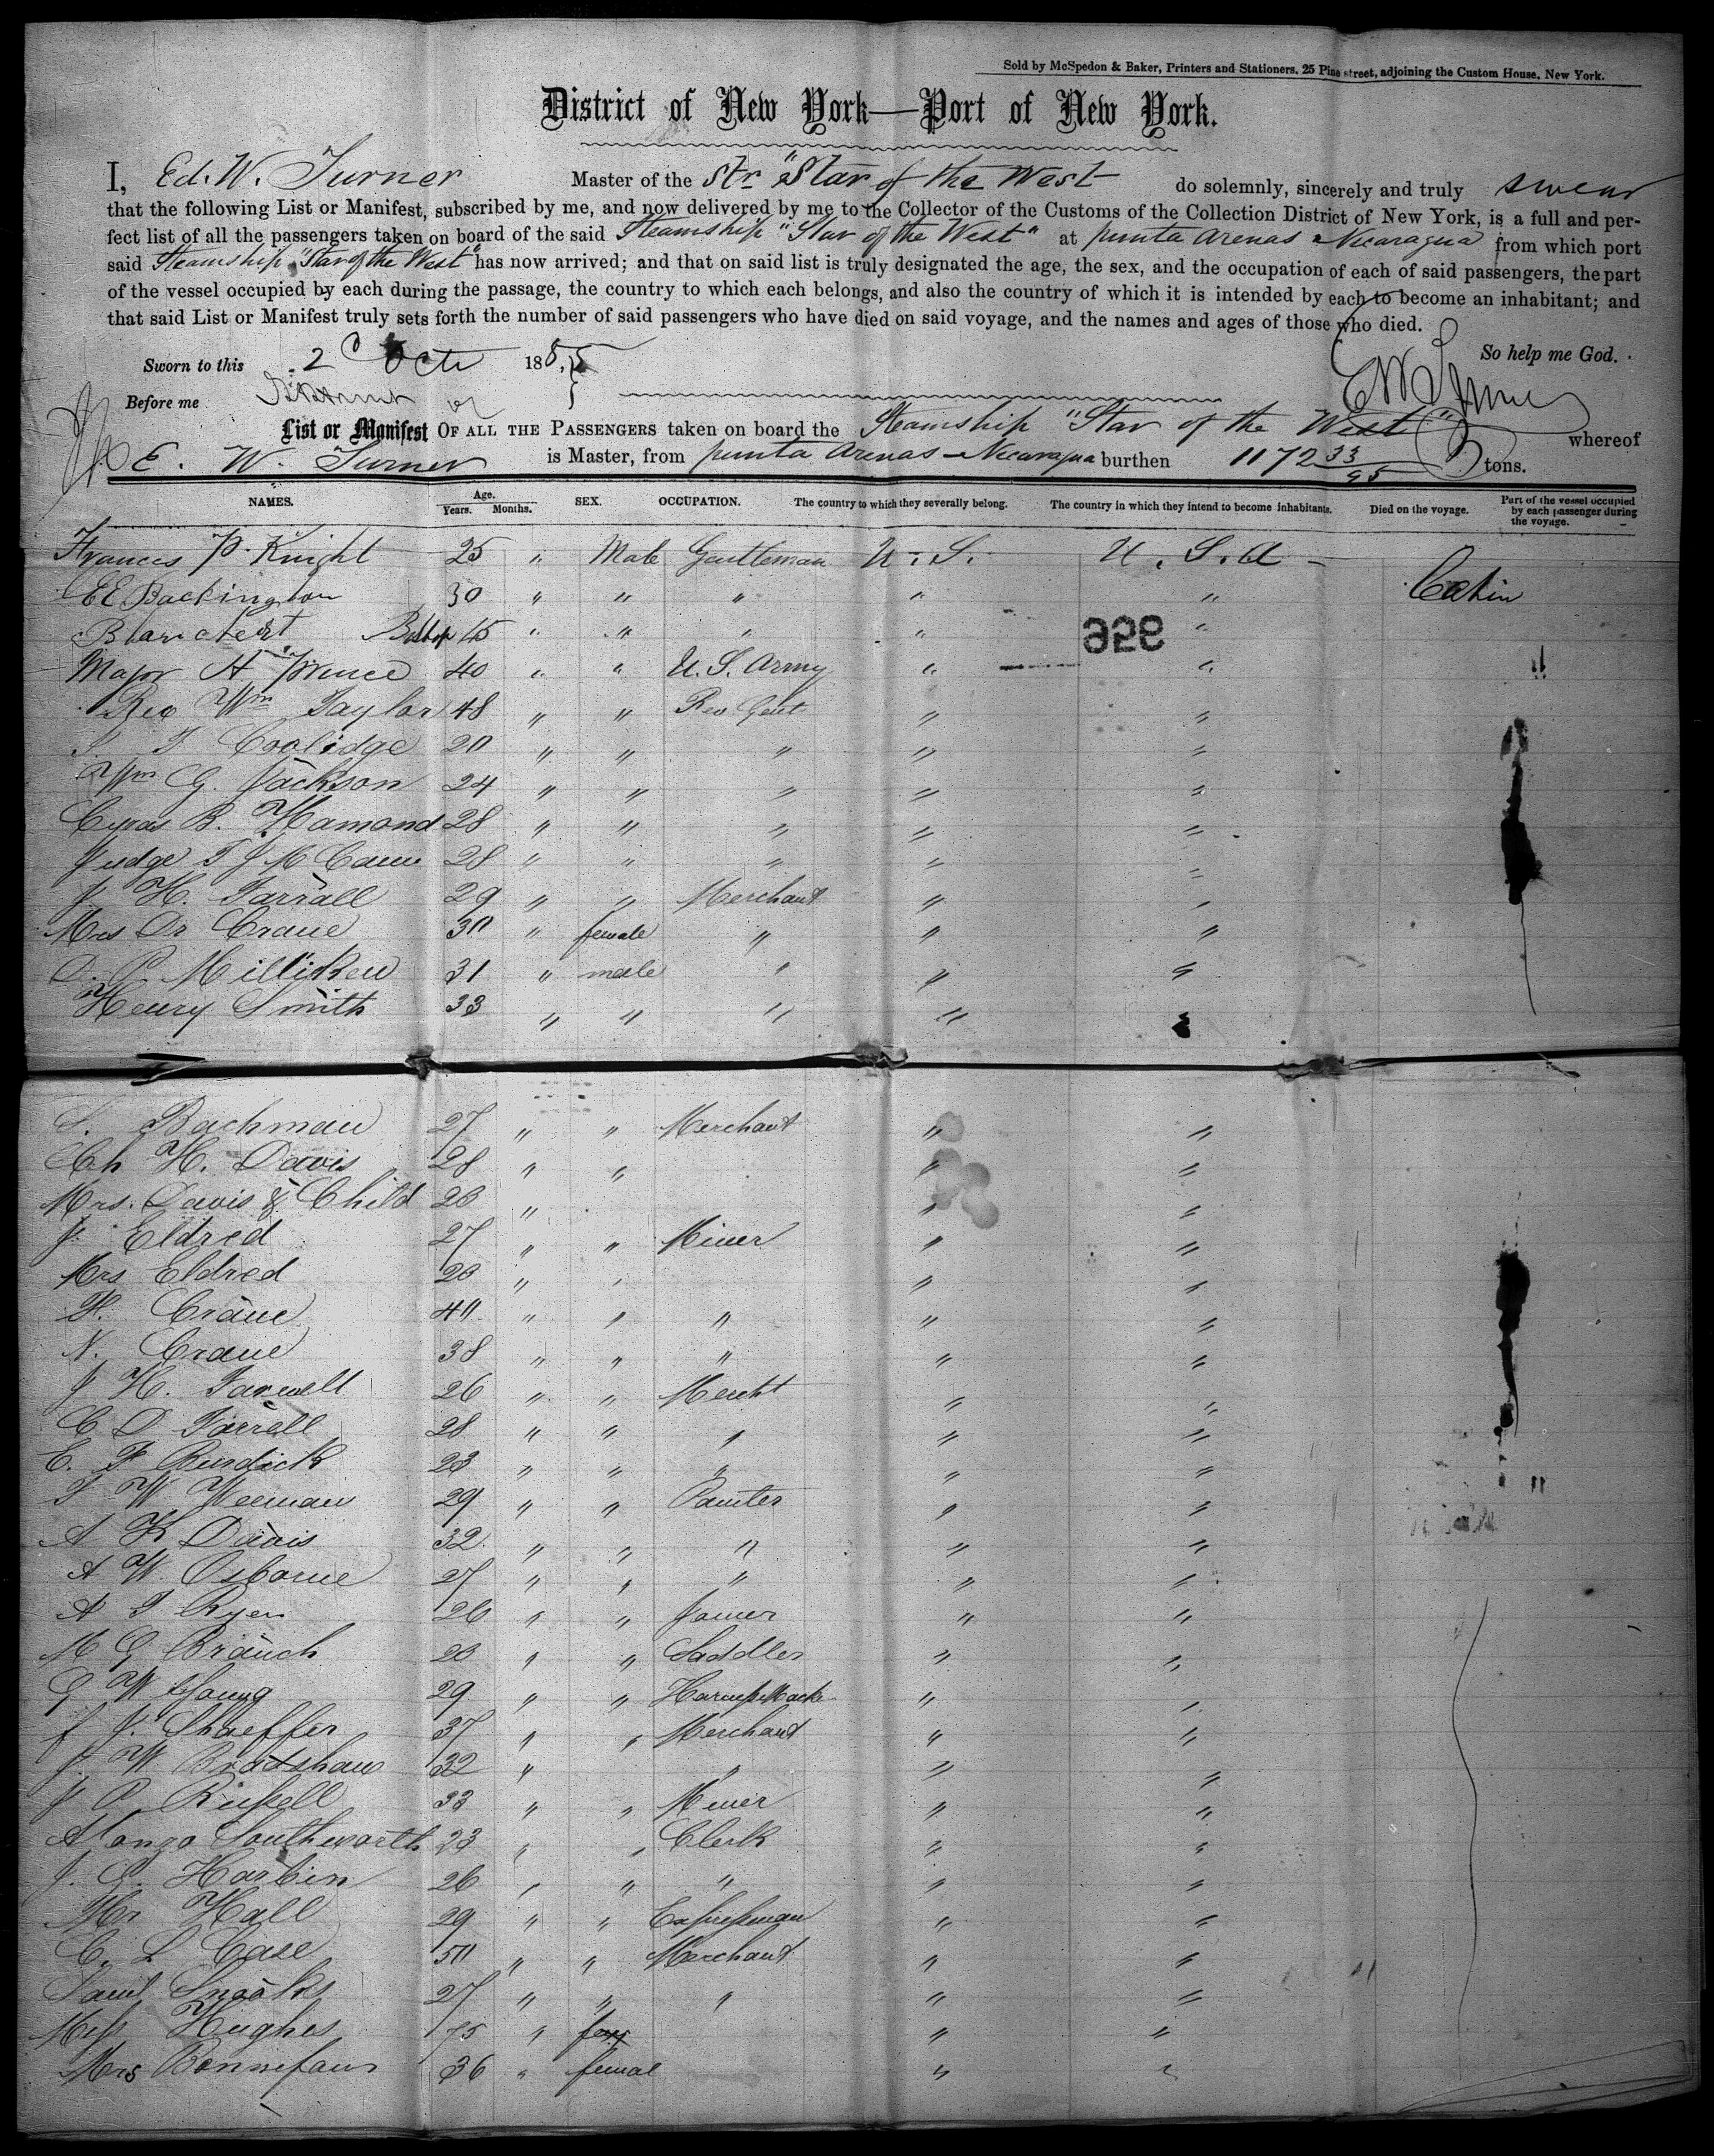 Sold by McSpedon & Baker, Printers and Stationers, 25 Pine street, adjoining the Custom House, New York.
District of New York—Port of New York.
I, Ed. W. Turner Master of the Str "Star of the West do solemnly, sincerely and truly swear
that the following List or Manifest, subscribed by me, and now delivered by me to the Collector of the Customs of the Collection District of New York, is a full and per-
fect list of all the passengers taken on board of the said Steamship "Star of the West" at punta Arenas Nicaragua from which port
said Steamship "Star of the West" has now arrived; and that on said list is truly designated the age, the sex, and the occupation of each of said passengers, the part
of the vessel occupied by each during the passage, the country to which each belongs, and also the country of which it is intended by each to become an inhabitant; and
that said List or Manifest truly sets forth the number of said passengers who have died on said voyage, and the names and ages of those who died.
Sworn to this 2 Oct 1855 So help me God.
Before me
List or Manifest OF ALL THE PASSENGERS taken on board the Steamship "Star of the West" whereof
E. W. Turner is Master, from punta Arenas Nicaragua burthen 1172 33/95 tons.
NAMES. Age. Years. Months. SEX. OCCUPATION. The country to which they severally belong. The country in which they intend to become inhabitants. Died on the voyage. Part of the vessel occupied by each passenger during the voyage.
Frances P. Knight 25 " Male Gentleman U. S. U. S. A
EE Backington 30 " " " " " Cabin
45 " " " " "
956
Major H Prince 40 " " U. S. Army " " "
Rev Wm Taylor 48 " " Rev Gent " "
S T Coolidge 20 " " " " "
Wm G. Jackson 24 " " " " "
Cyras B. Hamond 28 " " " " "
Judge T J McCann 28 " " " " "
J H. Farrall 29 " " Merchant " "
Mrs Dr Crane 30 " female " " "
D. P. Milliken 31 " male " " "
Henry Smith 33 " " " "
S. Bachman 27 " " Merchant " "
Ch H. Davis 28 " " " "
Mrs. Davis & Child 20 " " "
J. Eldred 27 " " Miner " "
Mrs Eldred 20 " " " "
H. Crane 40 " " " " "
N. Crane 38 " " " " "
J H. Farwell 26 " " Mercht " "
C D Farrell 28 " " " " "
E. F Burdick 23 " " " " "
T W Weeman 29 " " Painter " " "
A K Davis 32 " " " " "
A W. Osborne 27 " " " " "
A T Ryer 26 " " Joiner " "
M G Branch 20 " " Saddler " "
G W Young 29 " " Harness Maker " "
J. Shaeffer 37 " " Merchant " "
J. W Bradshaw 32 " " " "
J P Russell 33 " " Miner " "
Alonzo Southworth 23 " " Clerk " "
J. C. Harbin 26 " " " " "
Mr Hall 29 " " Expressman " "
C. L Case 50 " " Merchant " "
Saml Snooks 27 " " " " "
Miss Hughes 75 " " "
Mrs Bonnefaus 36 " femal " "